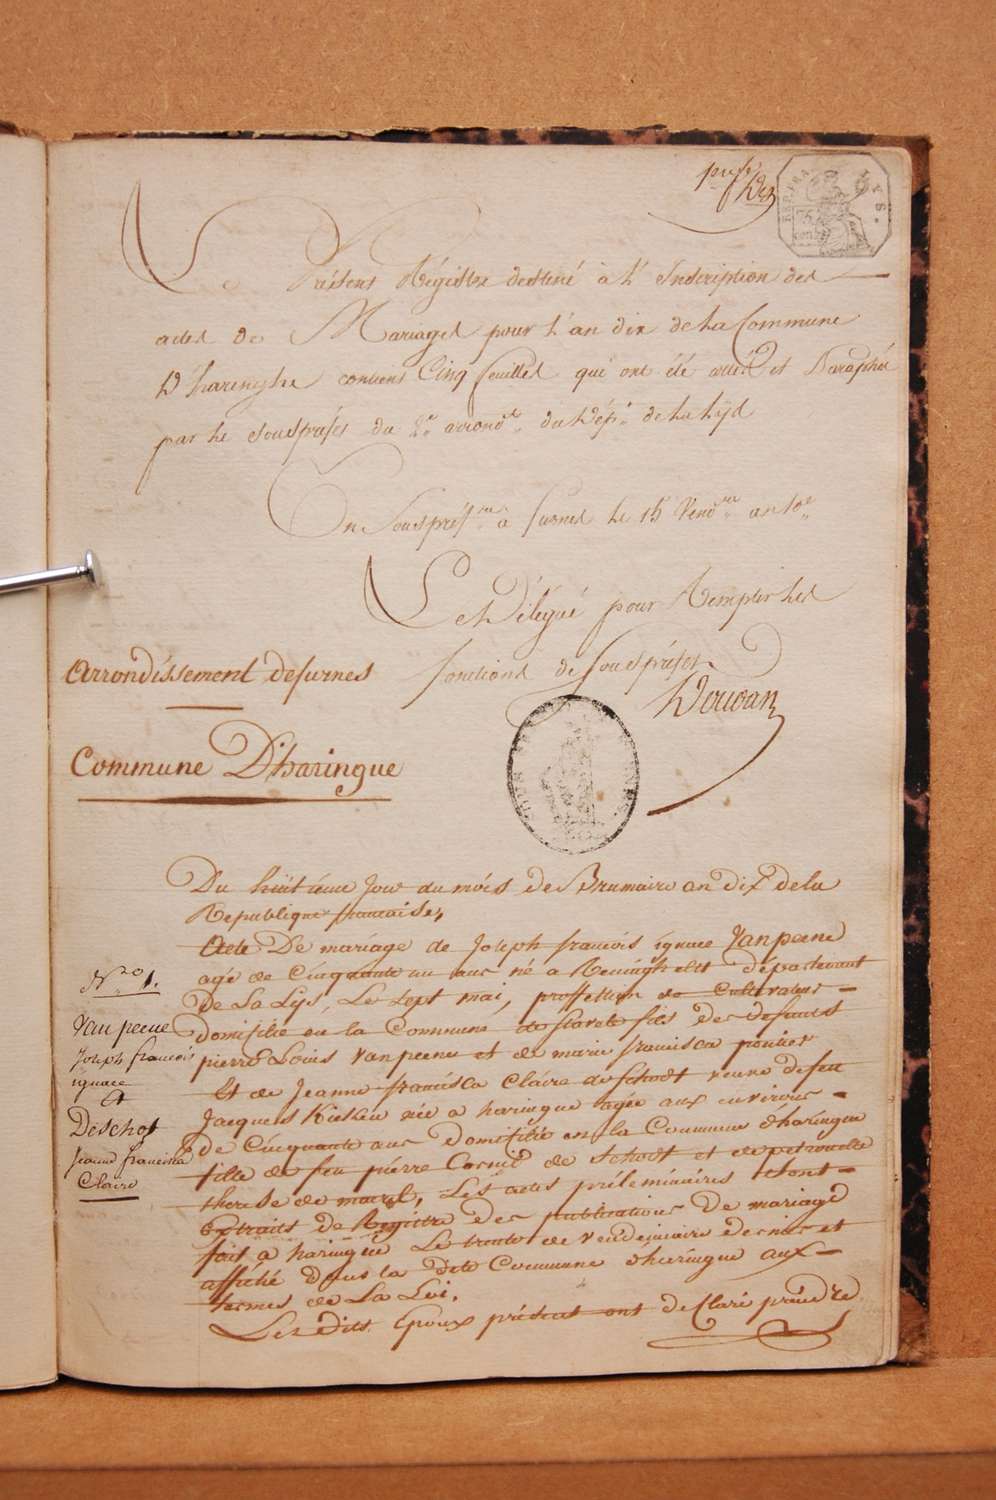 Le Présent Régistre destiné à l'Inscription des
actes de Mariages pour l'an dix de la Commune
D'haringhe contient Cinq feuillets qui ont été cottés et Paraphés
par le Souspréfet du 2e arrondt. du Dépt. de la Lys
En Souspréfre. a furnes le 15 Vendre. an 10e.
Le Délégué pour Remplir les
fonctions de Souspréfet
Arrondissement de furnes
Commune D'haringue
Du huitieme Jour du móis de Brumaire an dix de la
Republique francaise,
Acte De mariage de Joseph francois ignace Vanpeene
agé de Cinquante un ans né a Reninghelst départemant
De La Lys, Le sept mai, proffession de Cultivateur
domisilié en la Commune de fils des defunts
pierre Louis Vanpeene et de marie francisca
Et de Jeanne francisca Claire de Schodt veuve defeu
Jacques née a haringue agée aux environs
de Cinquante ans domisiliée en la Commune d'haringue
fille de feu pierre Cornil de Schodt et de petronelle
therese de Les actes préleminaires sont
extraits de Registre des publications de mariage
fait a haringue Le trente de vendemiaire dernier et
affiché dans la dite Commune d'haringue aux
termes de La Loi.
Les dits Epoux présent ont declaré prendre
No. 1.
Vanpeene
Joseph francois
ignace
&
Deschot
Jeanne francisca
Claire